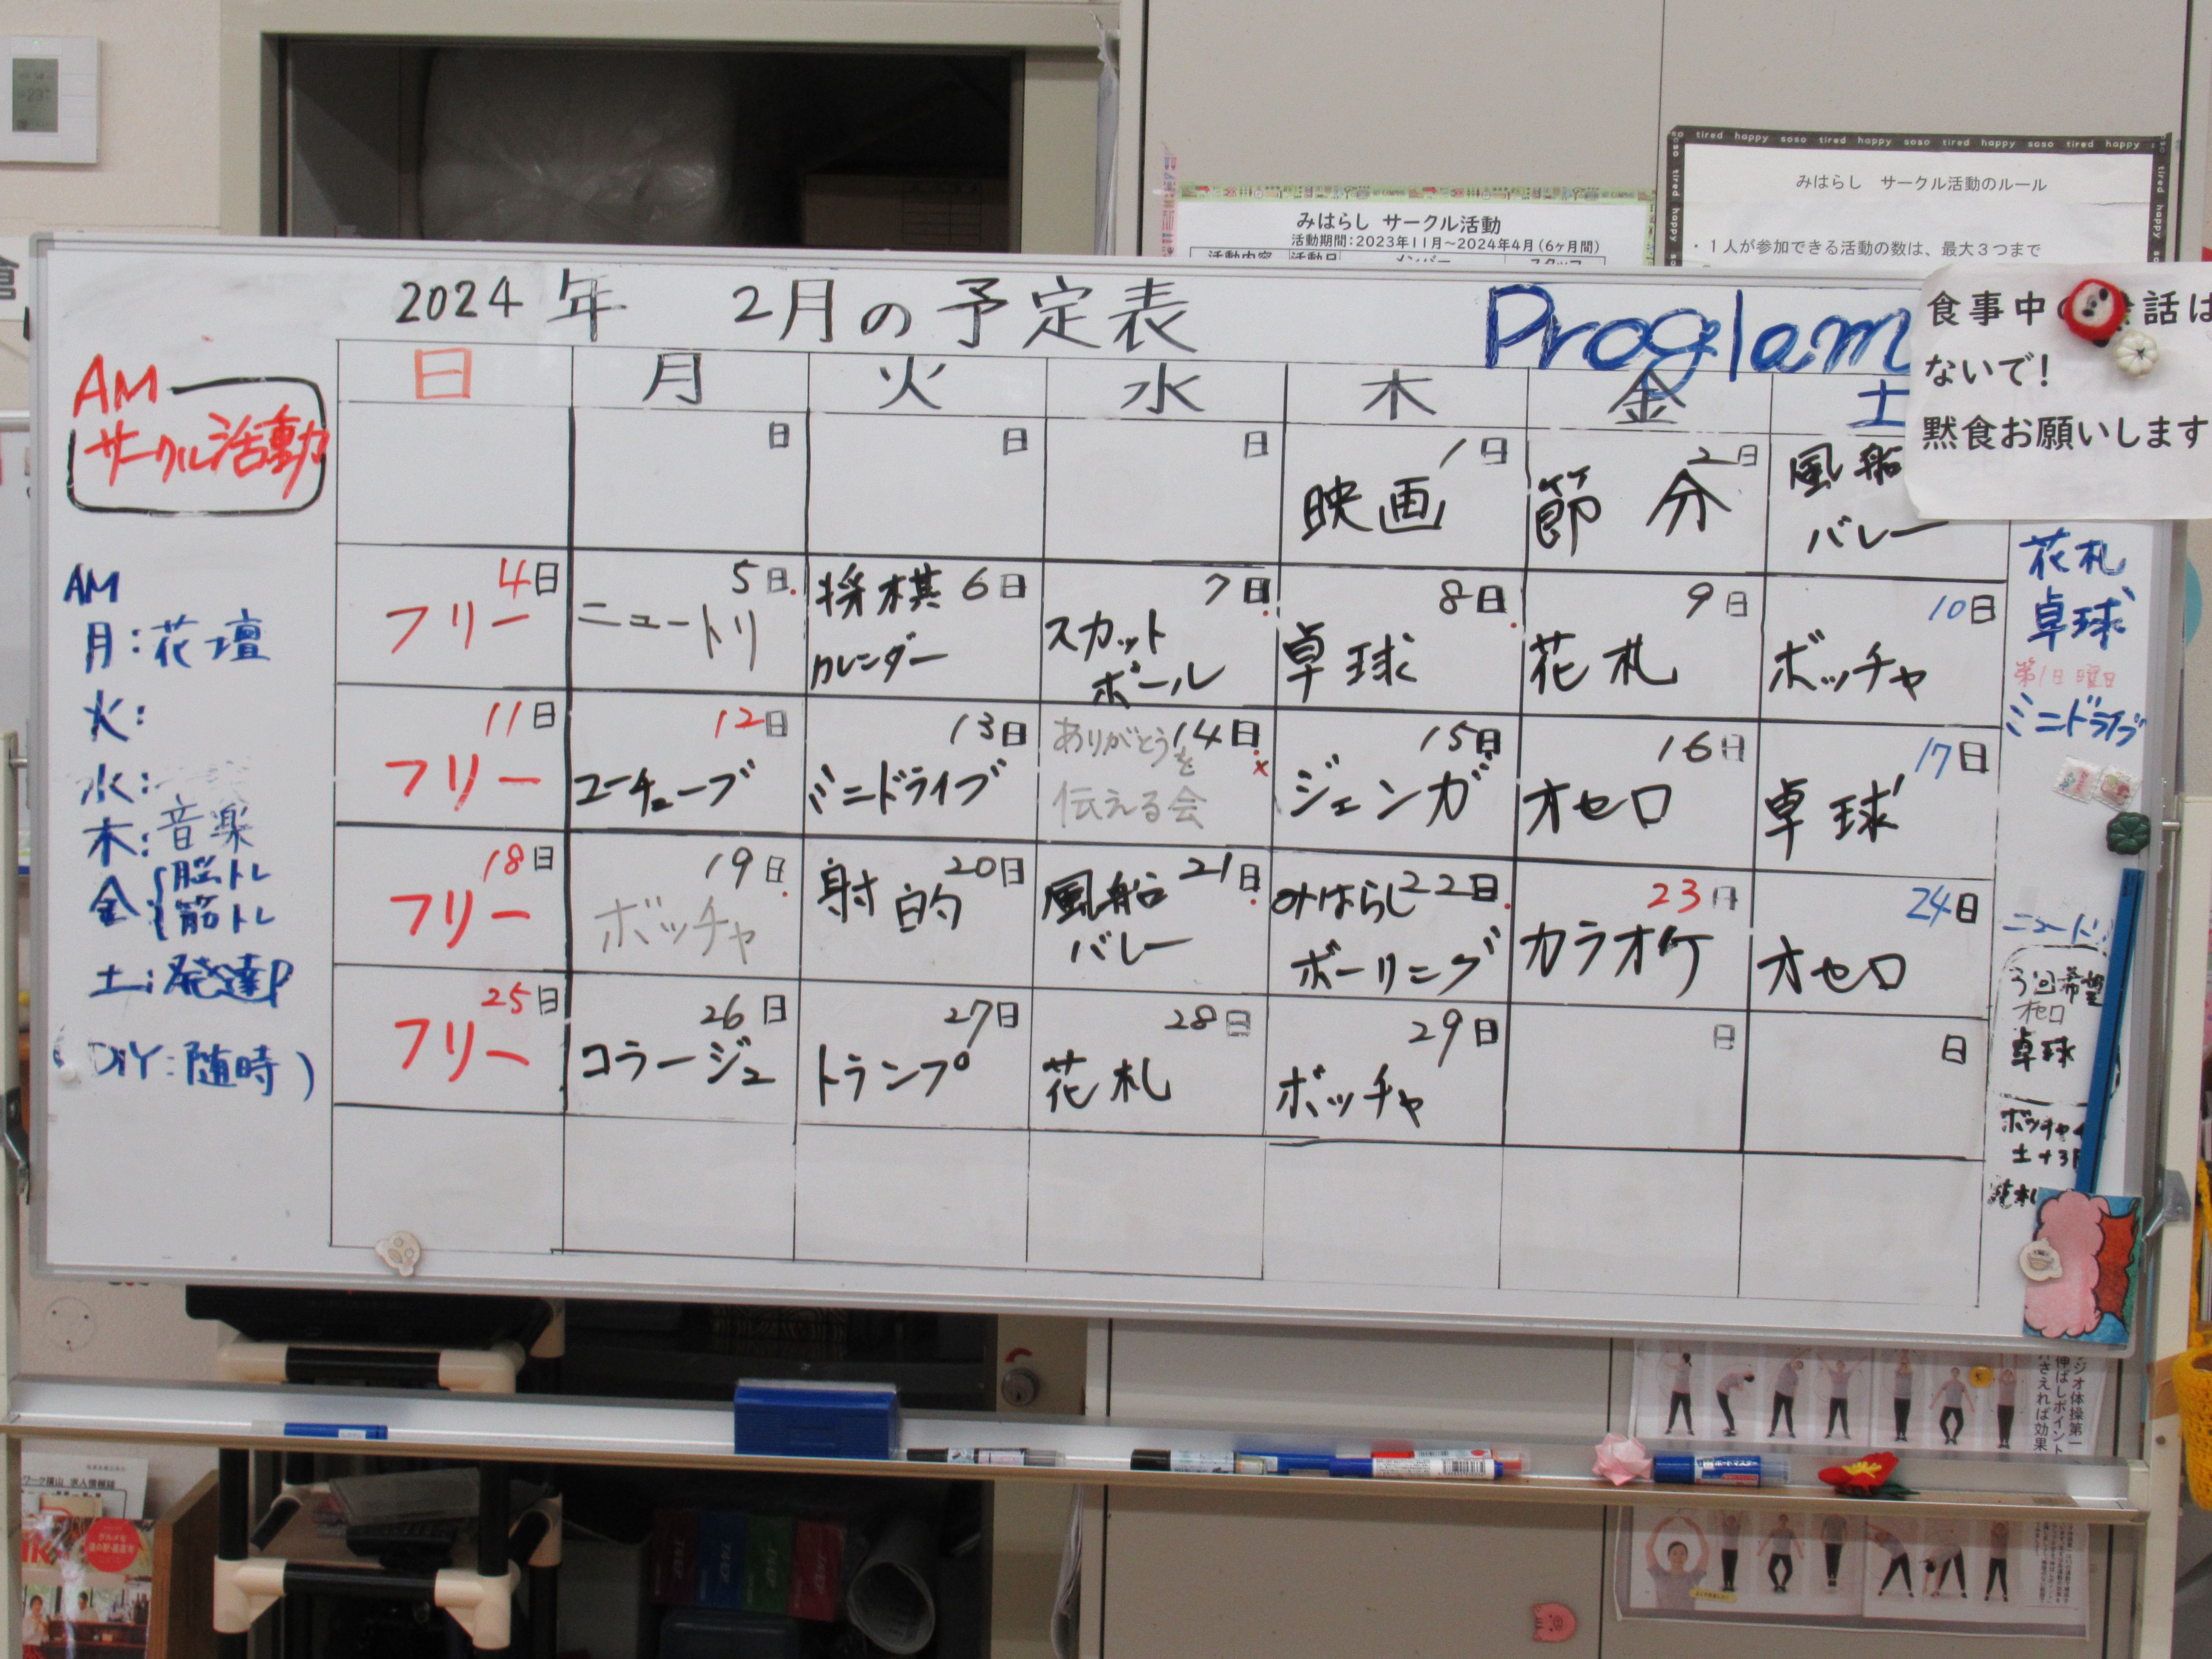 みはらし サークル活動
活動期間：2023年11月～2024年4月（6ヶ月間）
soso tired happy soso tired happy soso tired happy soso tired happy
みはらし サークル活動のルール
・1人が参加できる活動の数は、最大3つまで
2024年 2月の予定表
Proglam
食事中
話は
ないで！
黙食お願いします
AM
サークル活動
AM
月：花壇
火：
水：
木：音楽
金 脳トレ
筋トレ
土：発達P
DiY：随時）
日 月 火 水 木 金 土
日 日 日 1日 2日
映画 節分 風船
バレー
4日 5日 6日 7日 8日 9日 10日
フリー ニュートリ 将棋
カレンダー スカット
ボール 卓球 花札 ボッチャ
11日 12日 13日 14日 15日 16日 17日
フリー ユーチューブ ミニドライブ ありがとうを
伝える会 ジェンガ オセロ 卓球
18日 19日 20日 21日 22日 23日 24日
フリー ボッチャ 射的 風船
バレー みはらし
ボーリング カラオケ オセロ
25日 26日 27日 28日 29日 日 日
フリー コラージュ トランプ 花札 ボッチャ
花札
卓球
第1日曜日
ミニドライブ
3回希望
オセロ
卓球
ボッチャ
ボードマスター